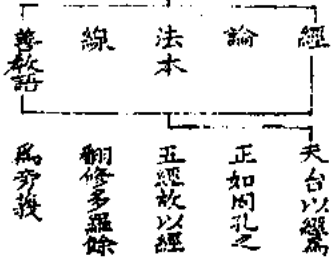 經
論
法本
線
善教語
天台以經為
正如周孔之
五經故以經
翻修多羅餘
為旁